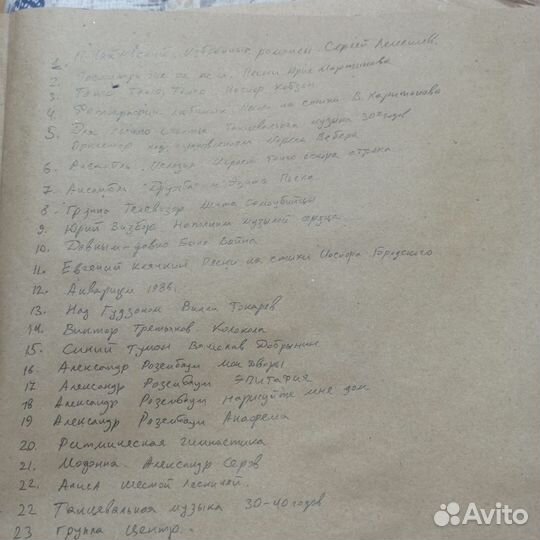 1. П. Чайковский. Избранные романсы. Сергей Лемешев.
2. Последуй за песни Юрия Мартынова
3. Танго, Танго, Танго. Иосиф Кобзон
4. Фотографии любимых. Песни на стихи В. Харитонова
5. Для милого Танцевальная музыка 30х годов
Оркестр под управлением Марека Вебера
6. Ансамбль
7. Ансамбль "Дружба" и Эдита Пьеха
8. Группа Телевизор Мечта Самоубийцы
9. Юрий Визбор Наполним музыкой сердца
10. Давным-давно была война
11. Евгений Клячкин Песни на стихи Иосифа Бродского
12. Аквариум 1986г.
13. Над Гудзоном Вилли Токарев
14. Виктор Третьяков Колокола
15. Синий Туман Вячислав Добрынин
16 Александр Розенбаум Мои Дворы
17 Александр Розенбаум Эпитафия
18 Александр Розенбаум Нарисуйте мне дом
19 Александр Розенбаум Анафема
20. Ритмическая гимнастика
21. Мадонна Александр Серов
22. Алиса Шестой Лесничий.
22 Танцевальная музыка 30-40 годов
23 Группа Центр.
Avito